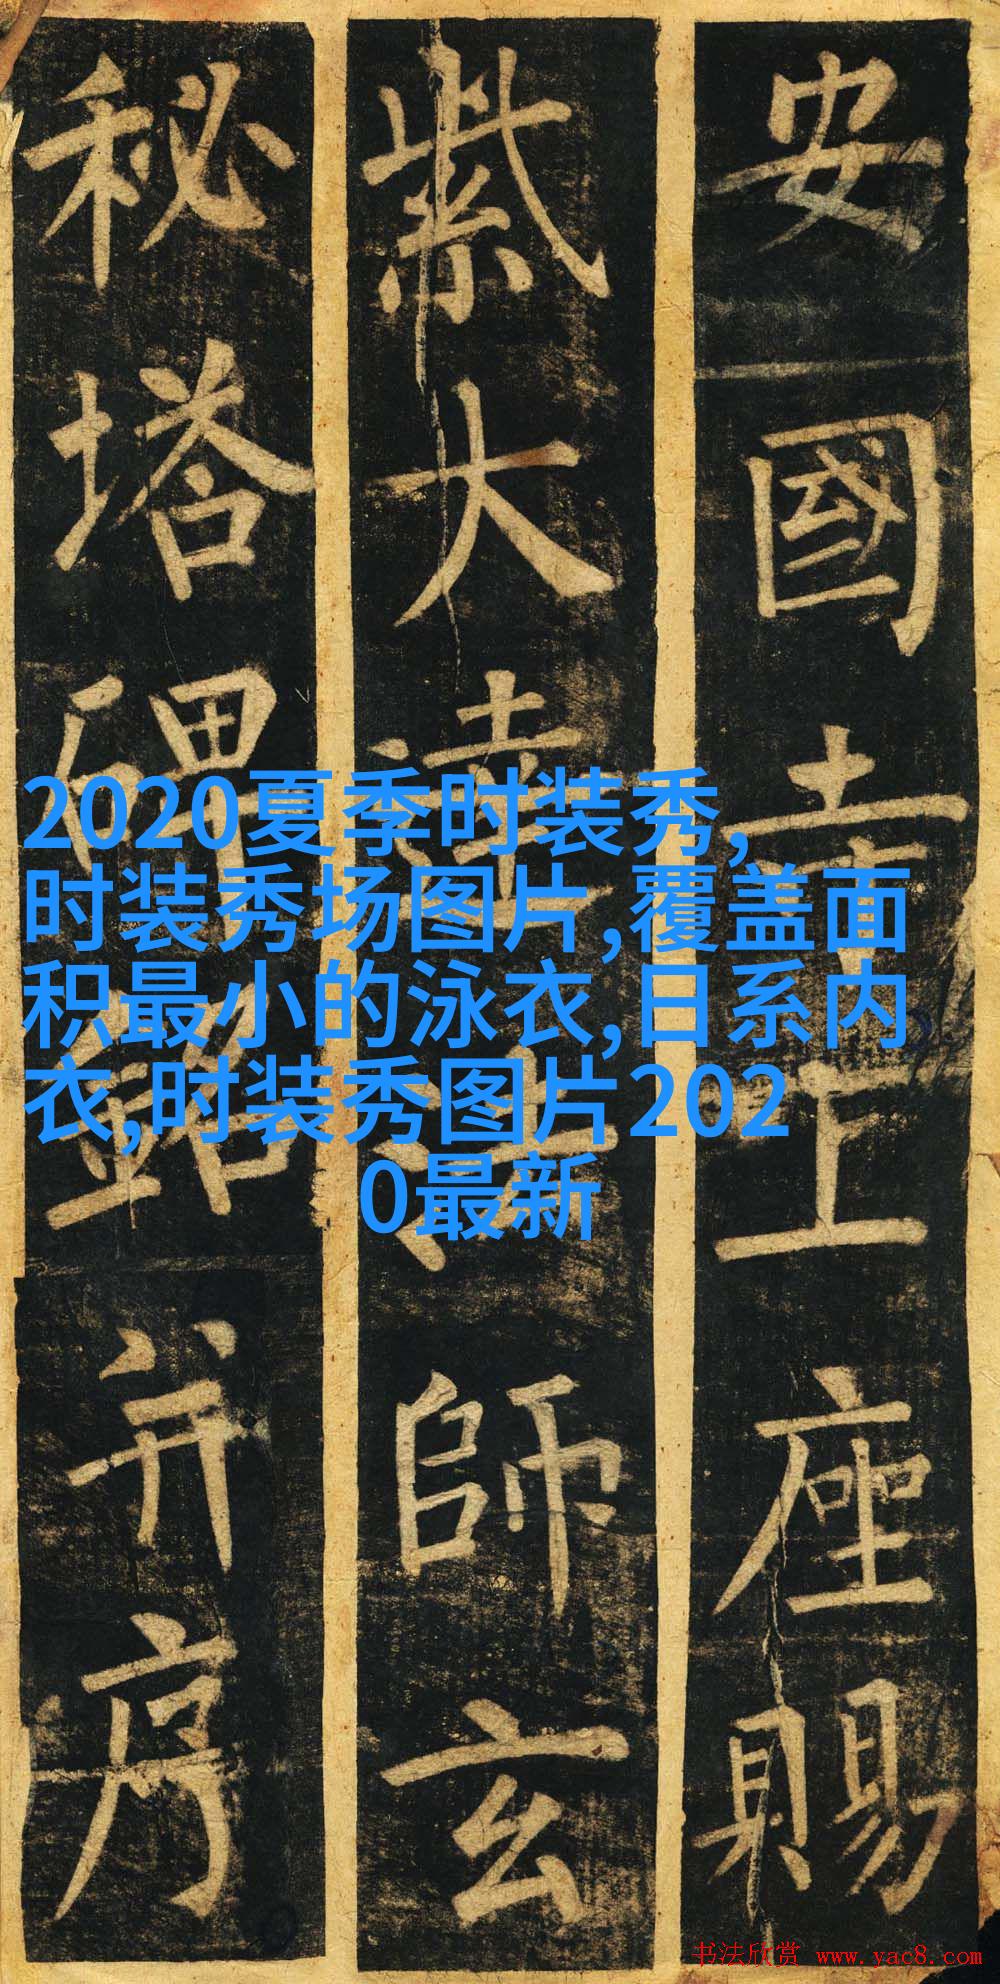 安國寺上座賜
紫大達法師玄
秘塔碑銘并序
2020夏季时装秀,
时装秀场图片,覆盖面
积最小的泳衣,日系内
衣,时装秀图片202
0最新
书法欣赏 www.yac8.com